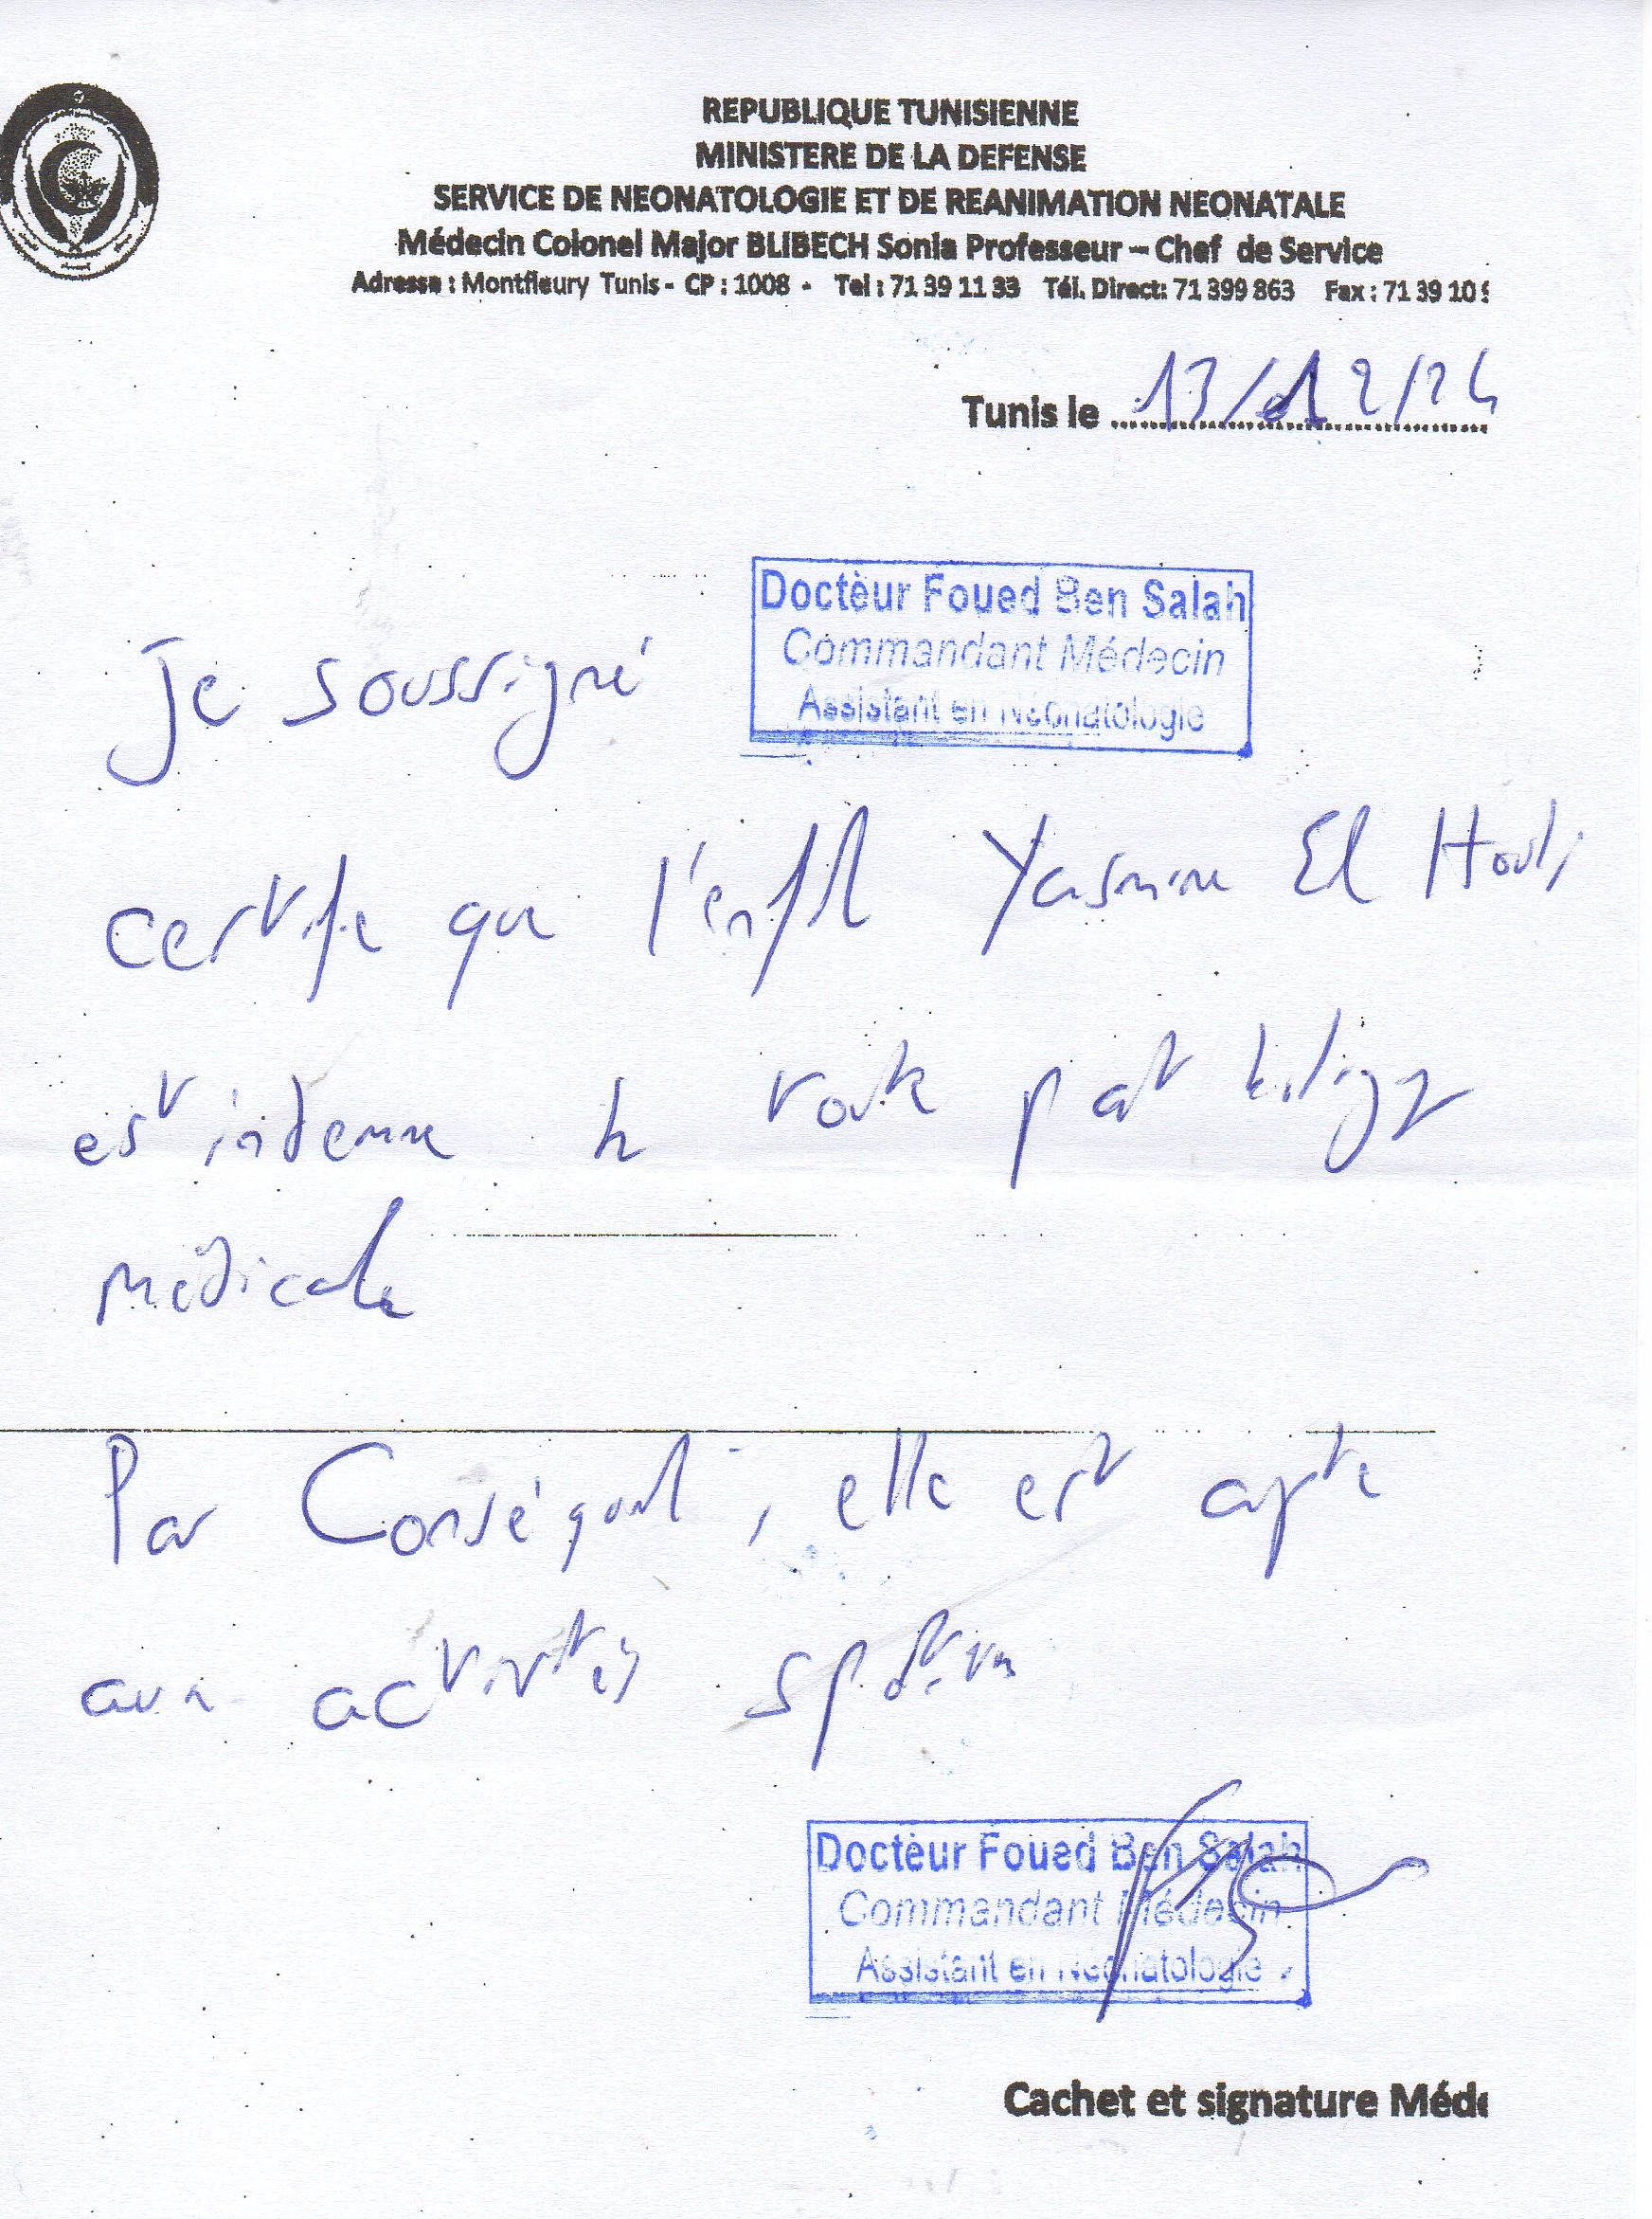 REPUBLIQUE TUNISIENNE
MINISTERE DE LA DEFENSE
SERVICE DE NEONATOLOGIE ET DE REANIMATION NEONATALE
Médecin Colonel Major BLIBECH Sonia Professeur – Chef de Service
Adresse : Montfleury Tunis - CP : 1008 - Tel : 71 39 11 33 Tél. Direct: 71 399 863 Fax : 71 39 10
Tunis le 13/12/24
Docteur Foued Ben Salah
Commandant Médecin
Assistant en Néonatologie
Je soussigné
certifie que l'enfant Yasmine El
est indemne de toute pathologie
médicale
Par Conséquent, elle est apte
aux activités sportives
Docteur Foued Ben Salah
Commandant Médecin
Assistant en Néonatologie
Cachet et signature Méde